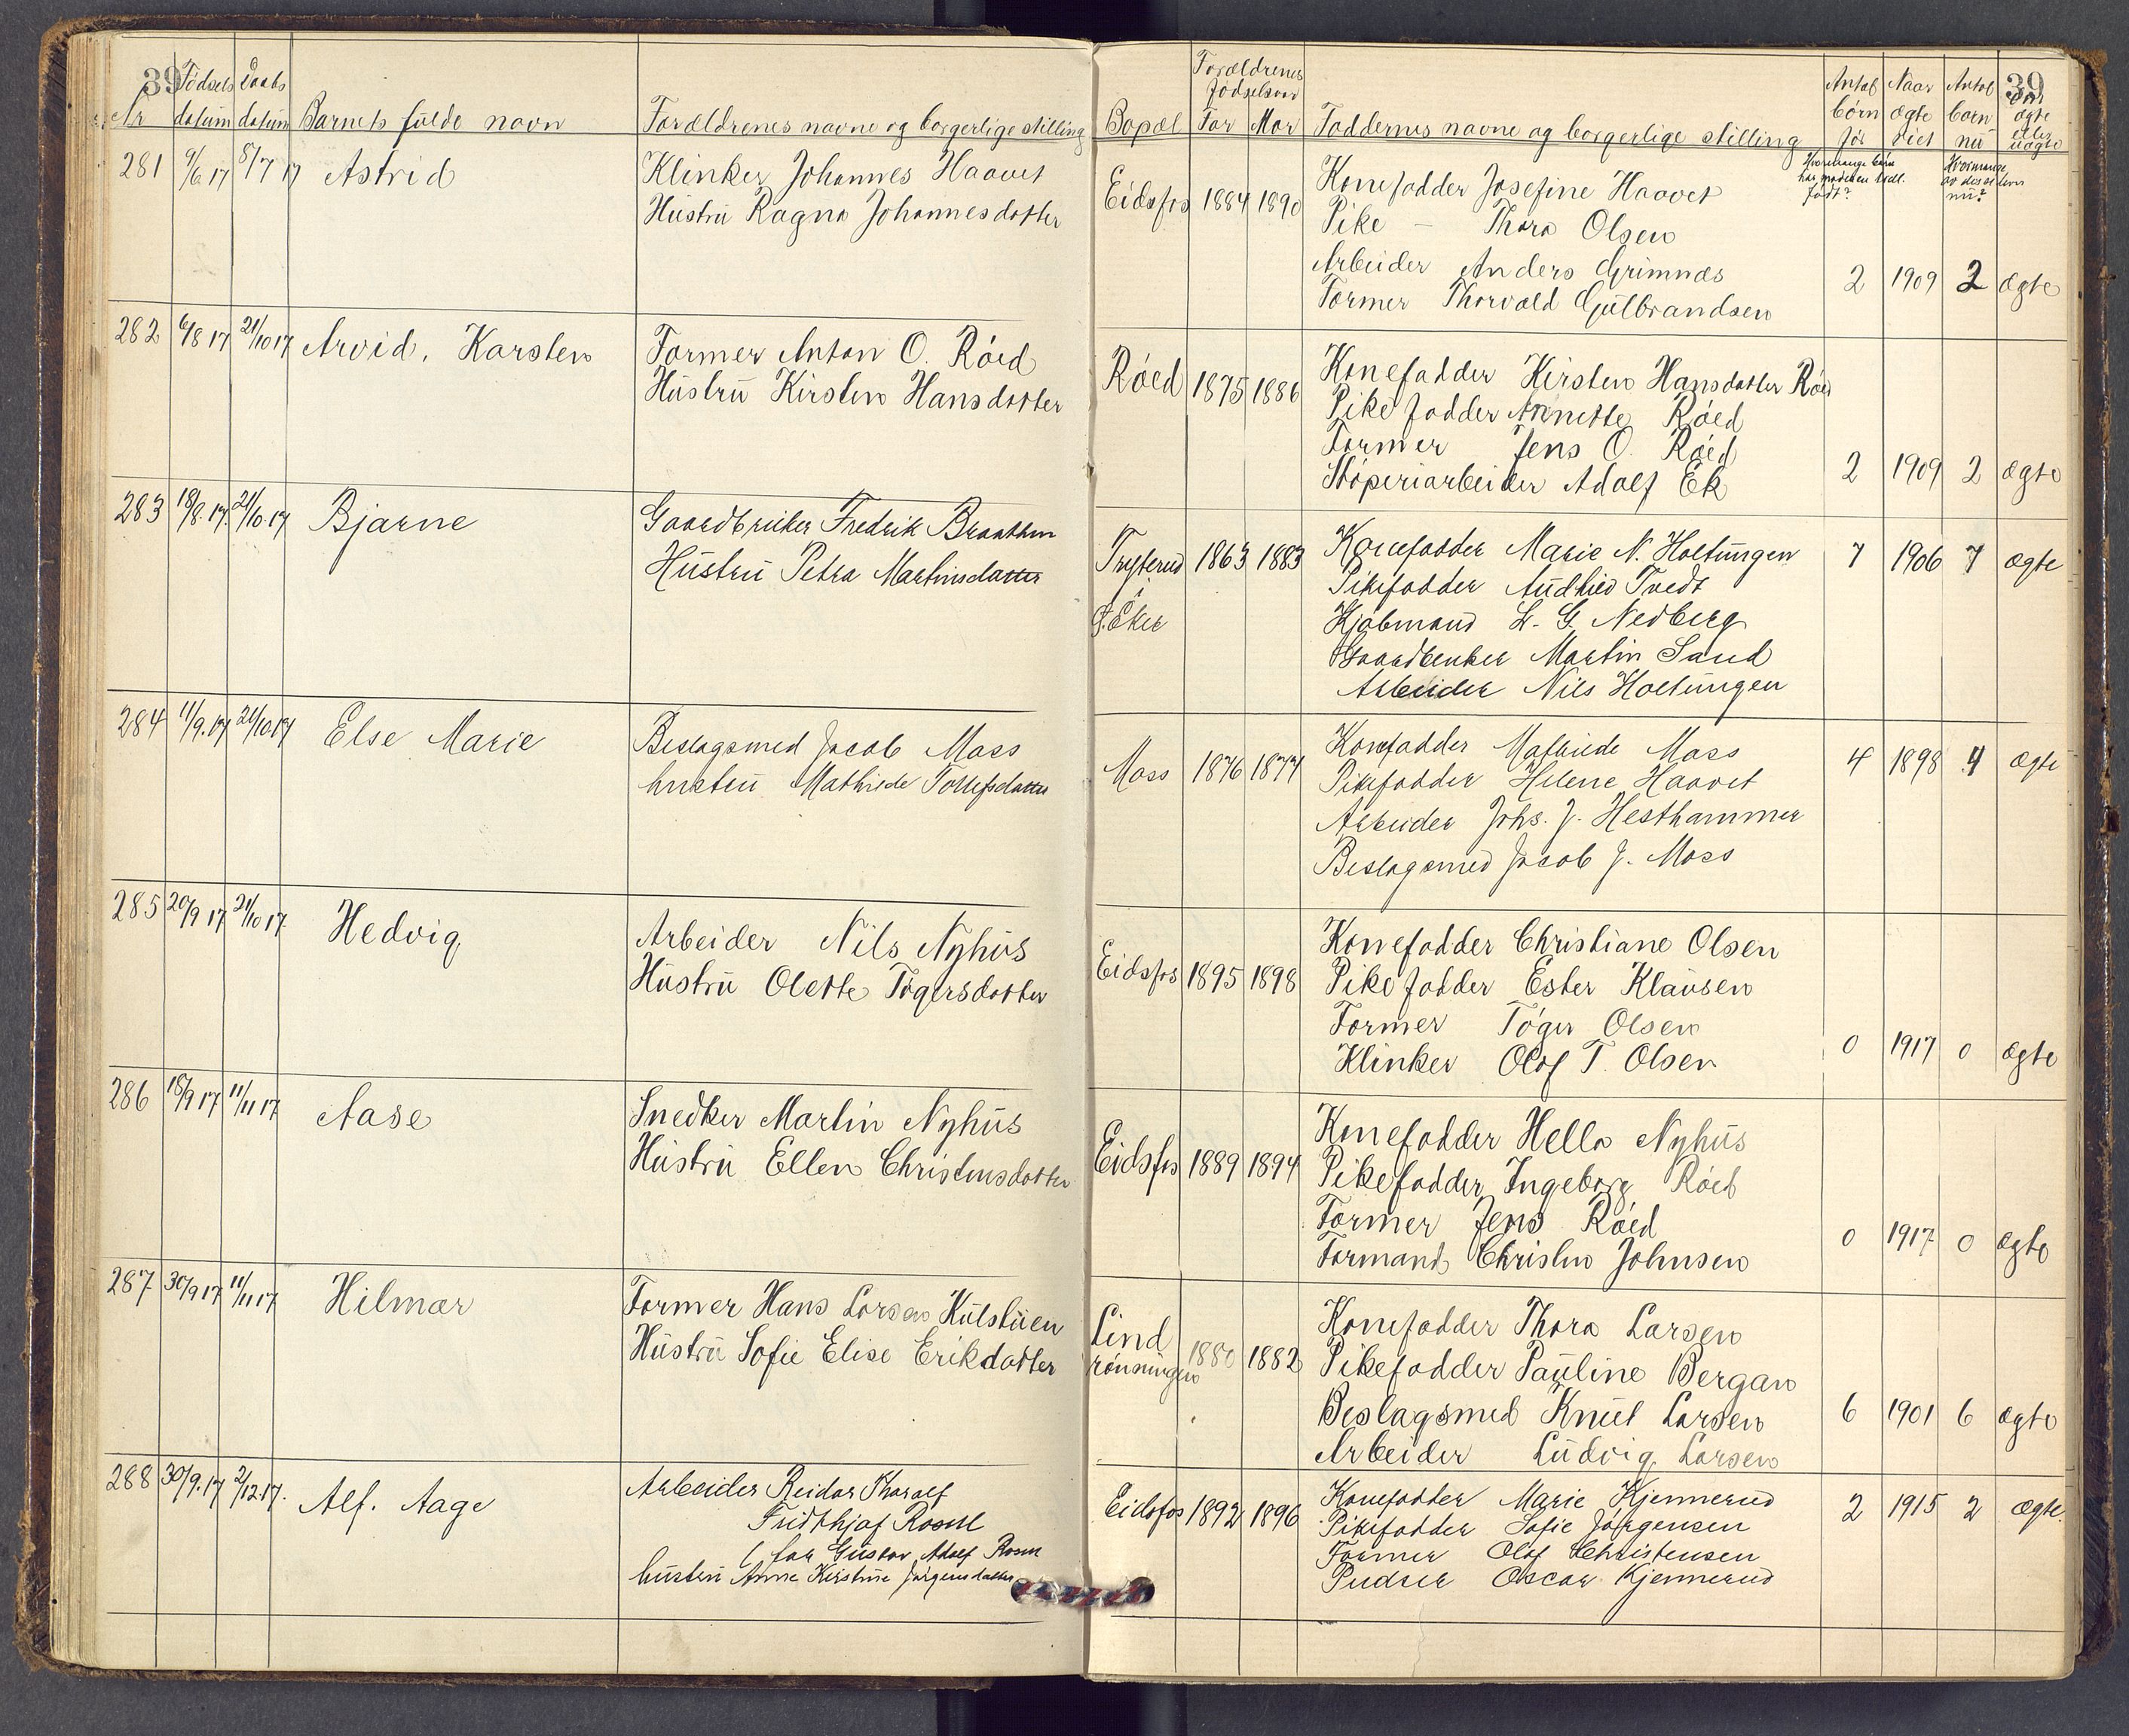 39 Fødsels Daabs
Nr datum datum Barnets fulde navn Forældrenes navne og borgerlige stilling
Forældrenes fødselsaar Antal Naar Antal 39
Bopæl Far Mor Faddernes navne og borgerlige stilling børn før ægte viet børn nu Om ægte eller uægte
Hvormange børn har moderen født? Hvormange av disse lever nu?
281 9/6 17 8/7 17 Astrid Klinker Johannes Haavet Eidsfos 1884 1890 Konefadder Josefine Haavet
Hustru Ragna Johannesdatter Pike – Thora Olsen
Arbeider Anders Grimnæs 2 1909 2 ægte
Former Thorvald Gulbrandsen
282 6/8 17 21/10 17 Arvid, Karsten Former Anton O. Røed Røed 1875 1886 Konefadder Kirsten Hansdatter Røed
Hustru Kirsten Hansdatter Pikefadder Annette Røed
Former Jens O. Røed
Støperiarbeider Adolf Ek 2 1909 2 ægte
283 18/8.17. 21/10.17 Bjarne Gaardbruker Fredrik Braathen Tryterud 1863 1883 Konefadder Marie N. Holtungen 7 1906 7 ægte
Hustru Petra Martinsdatter Pikefadder Audhild Tvedt
Ø. Eker Kjøbmand L. G. Nedberg
Gaardbruker Martin Sand
Arbeider Nils Holtungen
284 11/9.17 21/10 17 Else Marie Beslagsmed Jacob Moss Moss 1876 1877 Konefadder Mathilde Moss 4 1898 4 ægte
hustru Mathilde Tollefsdatter Pikefadder Helene Haavet
Arbeider Johs. J. Hesthammer
Beslagsmed Jacob J. Moss
285 20/9 17 21/10 17. Hedvig Arbeider Nils Nyhus Eidsfos 1895 1898 Konefadder Christiane Olsen
Hustru Olette Tøgersdatter Pikefadder Ester Klausen
Former Tøger Olsen
Klinker Olaf T. Olsen 0 1917 0 ægte
286 18/9 17 11/11 17 Aase Snedker Martin Nyhus Eidsfos 1889 1894 Konefadder Hella Nyhus
Hustru Ellen Christensdatter Pikefadder Ingeborg Røed
Former Jens Røed
Formand Christen Johnsen 0 1917 0 ægte
287 30/9 17 11/11 17 Hilmar Former Hans Larsen Kulstuen Lindrønningen 1880 1882 Konefadder Thora Larsen
Hustru Sofie Elise Erikdatter Pikefadder Pauline Bergan
Beslagsmed Knut Larsen 6 1901 6 ægte
Arbeider Ludvig Larsen
288 30/9.17 2/12.17. Alf. Aage Arbeider Reidar Tharalf Eidsfos 1892 1896 Konefadder Marie Kjennerud 2 1915 2 ægte.
Fridthjof Rosell Pikefadder Sofie Jørgensen
( far Gustav Adolf Rosell Former Olaf Christensen
hustru Anne Kirstine Jørgensdatter Pudser Oscar Kjennerud